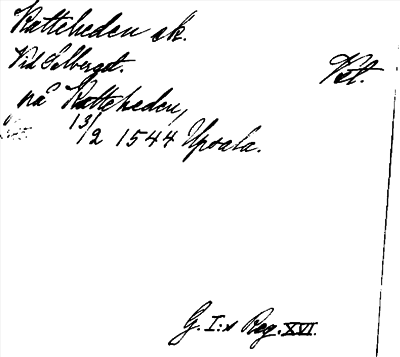 Katteheden ek.
Vid Salberget. Vst.
på Katteheden,
13/2 1544 Upsala.
G. I:s Reg. XVI.